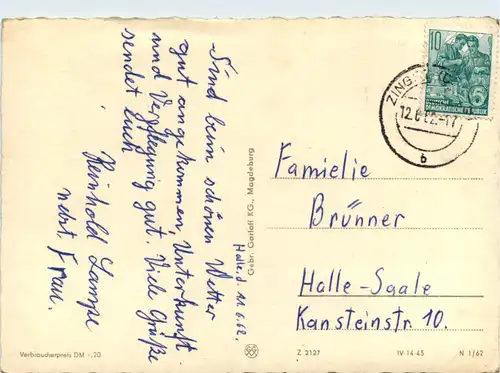 Halle, d. 11.6.62.
Sind beim schönen Wetter
gut angekommen, Unterkunft
und Verpflegung gut. Viele Grüße
sendet Euch
Reinhold Lampe
nebst. Frau.
Gebr. Garloff KG., Magdeburg
10
DEUTSCHE DEMOKRATISCHE REPUBLIK
ZINGST
12.6.62.-17
b
Famielie
Brünner
Halle-Saale
Kansteinstr. 10.
Verbraucherpreis DM -,20
Z 2127
IV-14-45
N 1/62